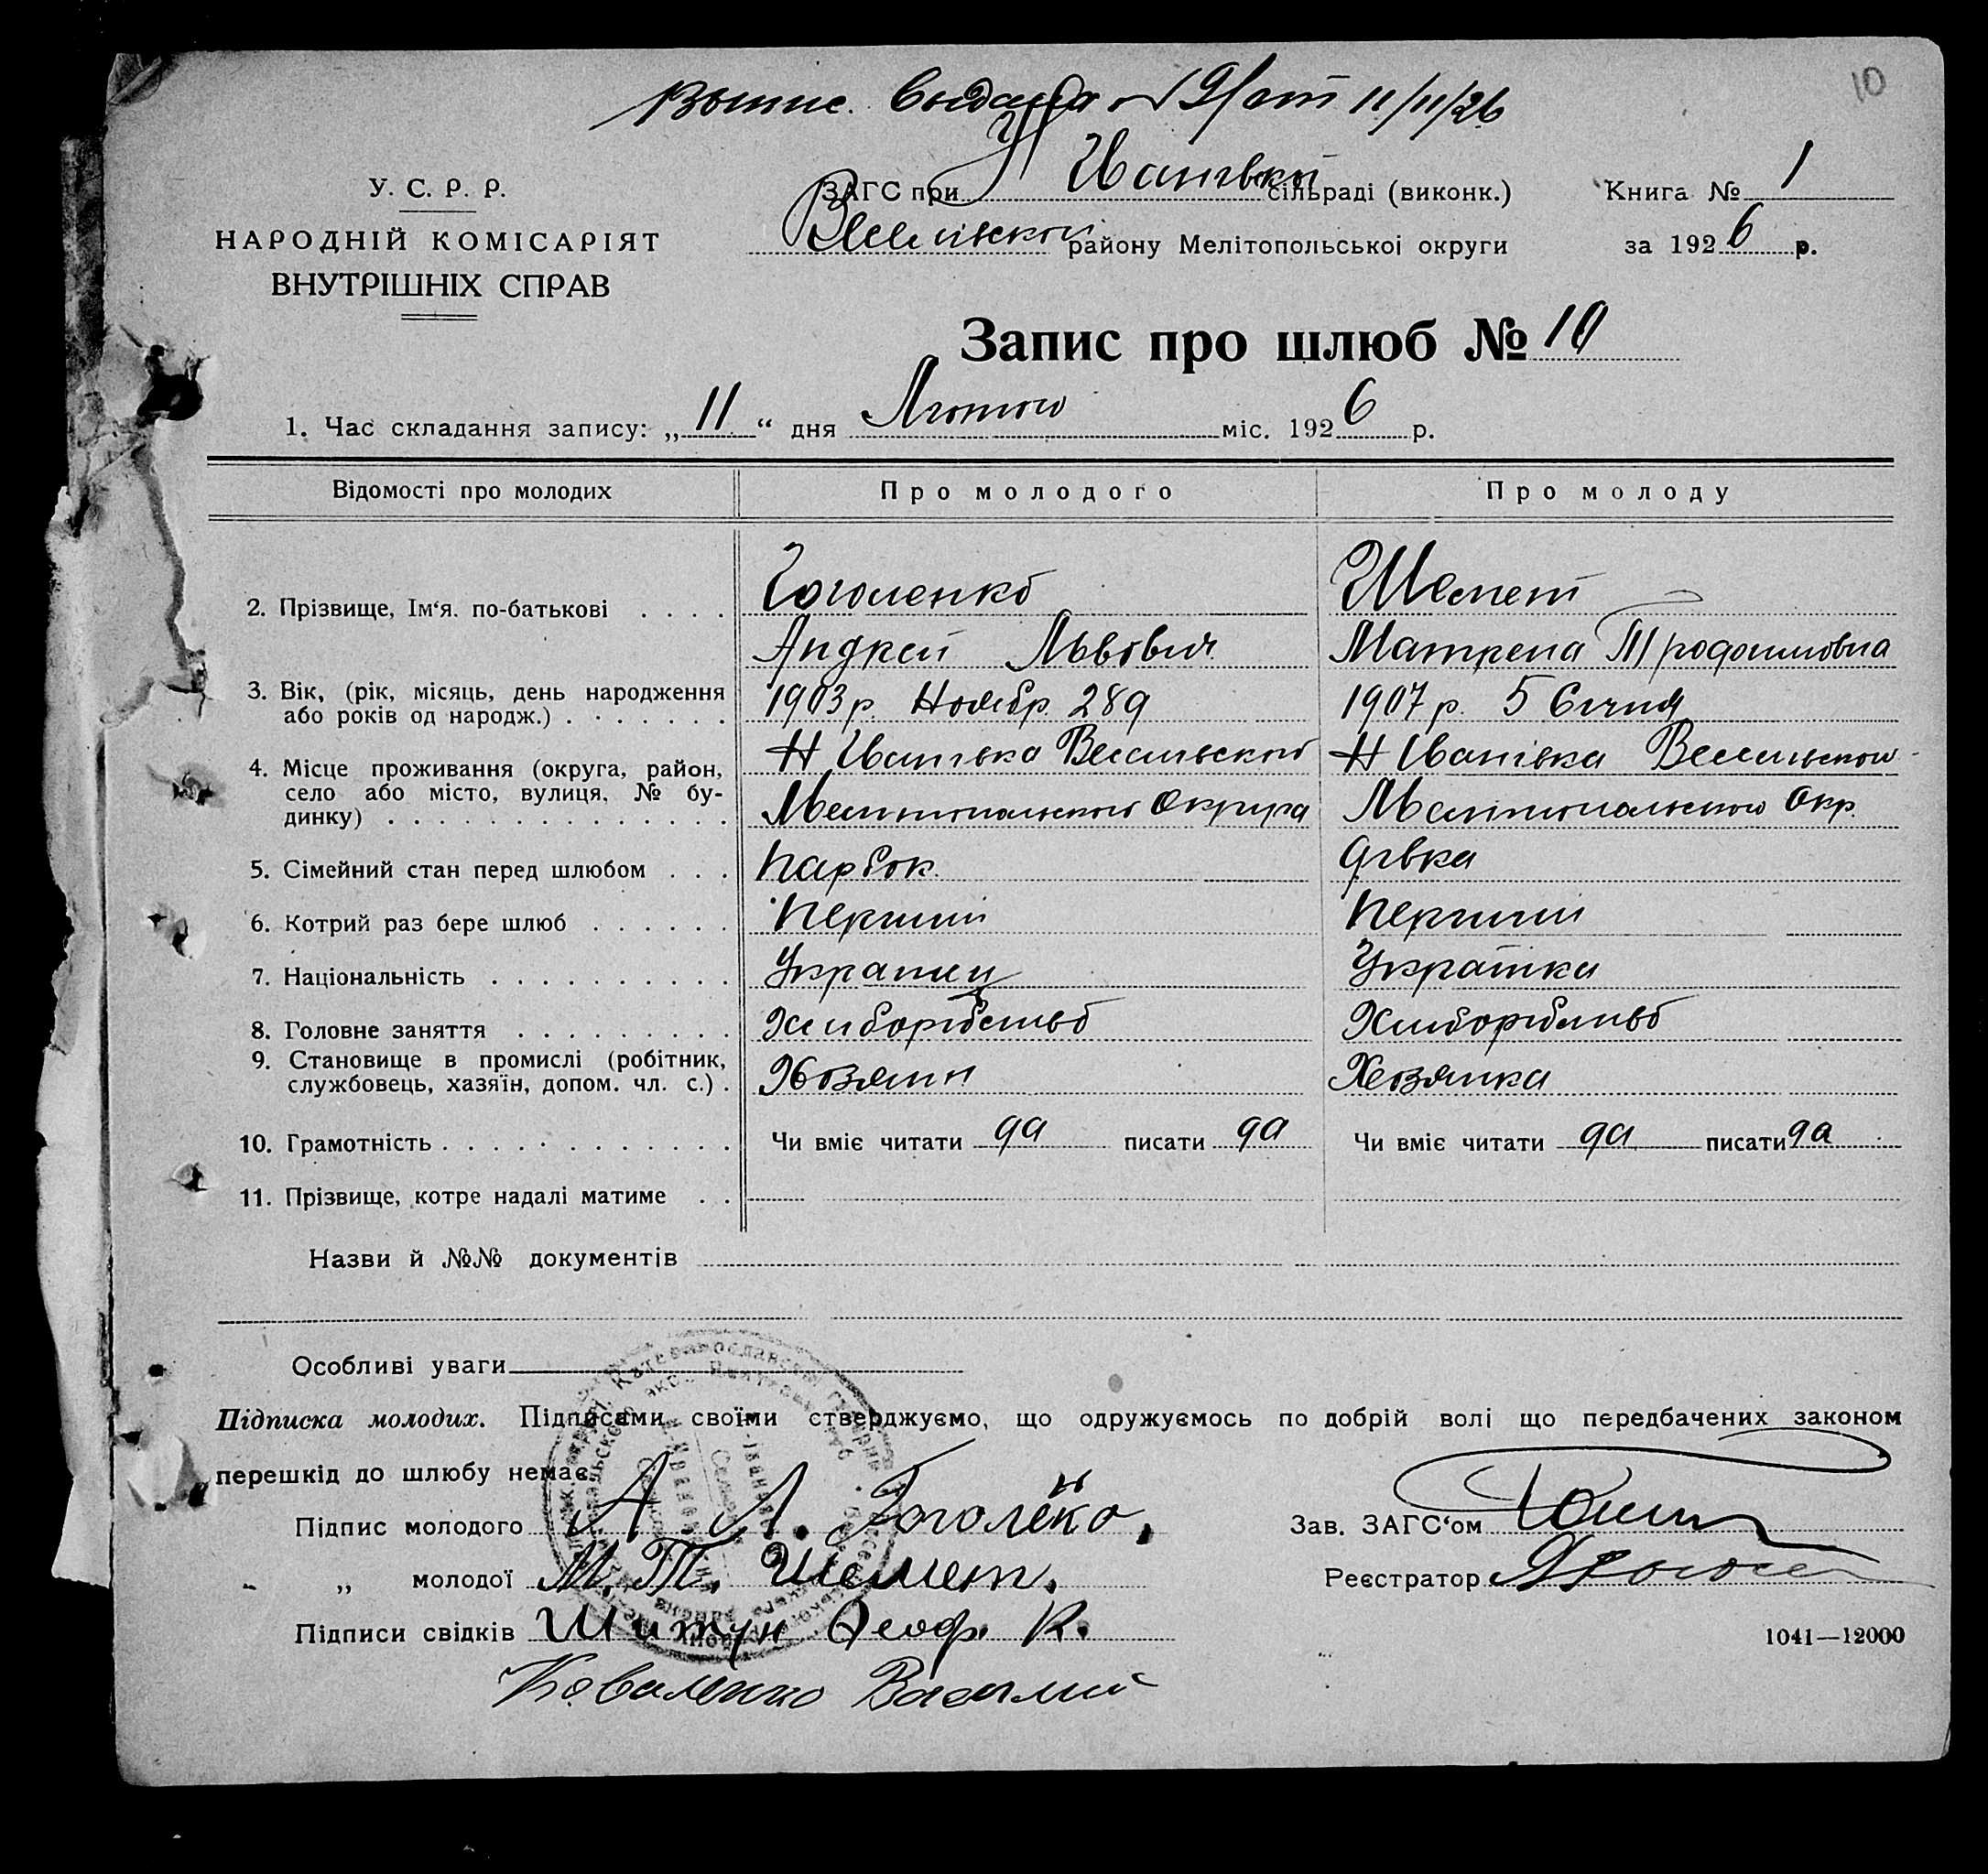 Выпис. выдана № 9/ от 11/II/26
10
У. С. Р. Р.
НАРОДНІЙ КОМІСАРІЯТ
ВНУТРІШНІХ СПРАВ
ЗАГС при Іванівской сільраді (виконк.) Книга № 1
району Мелітопольської округи за 1926 р.
Запис про шлюб № 10
1. Час складання запису: „11“ дня Лютого міс. 1926 р.
Відомості про молодих Про молодого Про молоду
2. Прізвище, Ім‘я. по-батькові . . . . Гоголенко Шемет
Андрей Львович Матрена Трофимовна
3. Вік, (рік, місяць, день народження 1903 р. Ноябр. 28д 1907 р. 5 Січня
або років од народж.) . . . . . . .
4. Місце проживання (округа, район, Н Іванівка Н Іванівка
село або місто, вулиця, № бу- Мелітопольского Округа Мелітопольского Окр.
динку) . . . . . . . . . . . . . .
5. Сімейний стан перед шлюбом . . . Парубок. Дівка
6. Котрий раз бере шлюб . . . . . . Перший Перший
7. Національність . . . . . . . . . . Українец Українка
8. Головне заняття . . . . . . . . . Хліборобство Хліборобство
9. Становище в промислі (робітник,
службовець, хазяїн, допом. чл. с.) . Хозяин Хозяика
10. Грамотність . . . . . . . . . . . . Чи вміє читати да писати да Чи вміє читати да писати да
11. Прізвище, котре надалі матиме . .
Назви й №№ документів
Особливі уваги
Підписка молодих. Підписами своїми стверджуємо, що одружуємось по добрій волі що передбачених законом
перешкід до шлюбу немає.
Підпис молодого А. Л. Гоголенко. Зав. ЗАГС‘ом
„ молодої М. Т. Шемет. Реєстратор
Підписи свідків Шижун Феоф. К.
1041—12000
Коваленко Василий